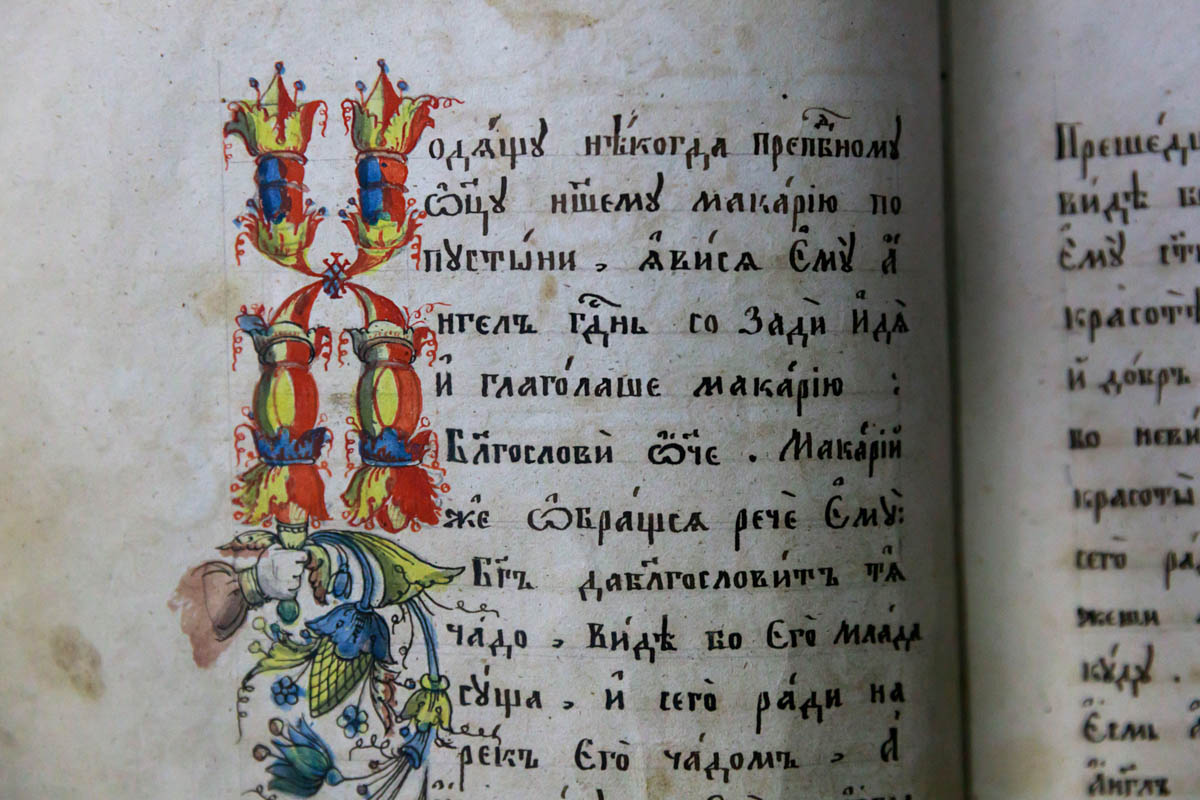 Ходѧ́щꙋ нѣ́когда препⷣбному
ѡ҆ц҃ꙋ нш҃емꙋ мака́рїю по
пꙋсты́ни , ꙗ҆ви́сѧ є҆мꙋ̀ а҆́
нгелъ гдⷭ҇нь со зади̑ и҆дѧ̀
и҆ глаго́лаше мака́рїю :
Бл҃гослови̑ ѻ҆́ч҃е . Мака́рїй
же ѡ҆бра́щсѧ рече̑ є҆мꙋ̀:
Бг҃ъ дабл҃гослови́тъ тѧ̀
ча́до , ви́дѣ бо єго̀ млада
сꙋ́ща , и҆ сего̀ ра́ди на
рекъ єго̀ ча́домъ , а҆́
Преше́д
ви́дѣ
є҆мꙋ̀
красотѣ
и҆ до́бръ
во неви
красоты̀
сего̀ ра́
жени
кꙋ́дꙋ .
є҆смь
а҆́нг҃лъ